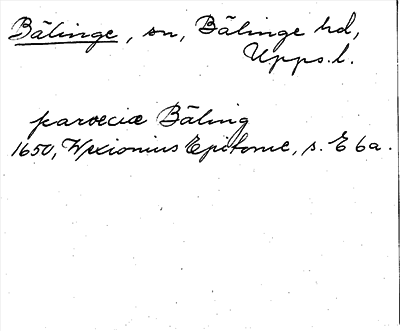 Bälinge, sn, Bälinge hd,
Upps. l.
paroeciæ Bäling
1650, Wexionius Epitome, s. E 6a.